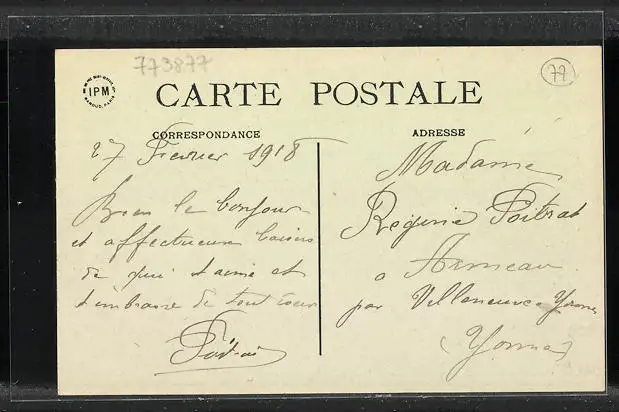 773877
77
IPM
CARTE POSTALE
CORRESPONDANCE
27 Fevrier 1918
Bien le bonjour
et affectueux baisers
de qui t'aime et
t'embrasse de tout cœur
ADRESSE
Madame
Poitrat
a Armeau
par Villeneuve s Yonne
(Yonne)